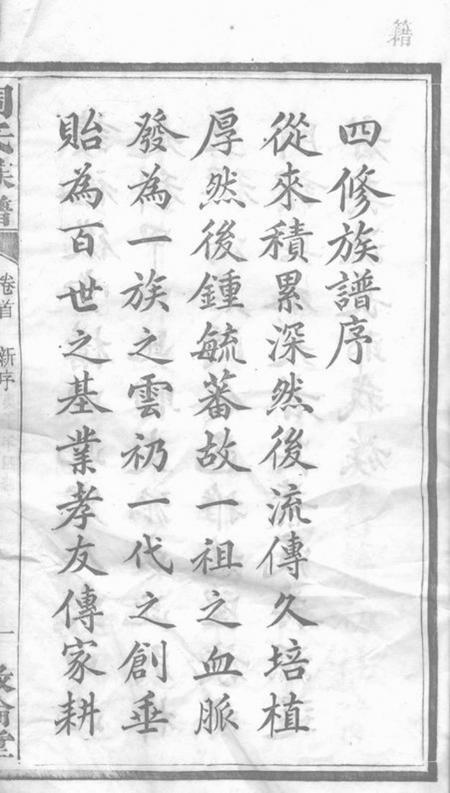 籍
四修族譜序
從來積累深然後流傳久培植
厚然後鍾毓蕃故一祖之血脈
發為一族之雲礽一代之創垂
貽為百世之基業孝友傳家耕
周氏族譜
卷首
新序
一
敦倫堂